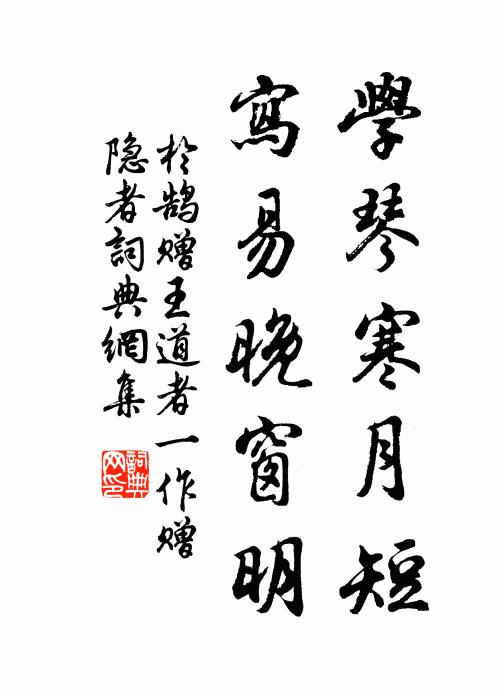 學琴寒月短
寫易晚窗明
於鵠赠王道者一作赠
隐者詞典網集
詞典网印